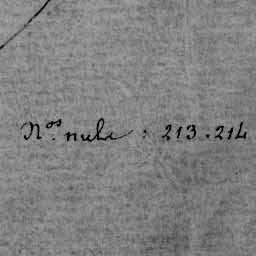 Nos. nube : 213.214